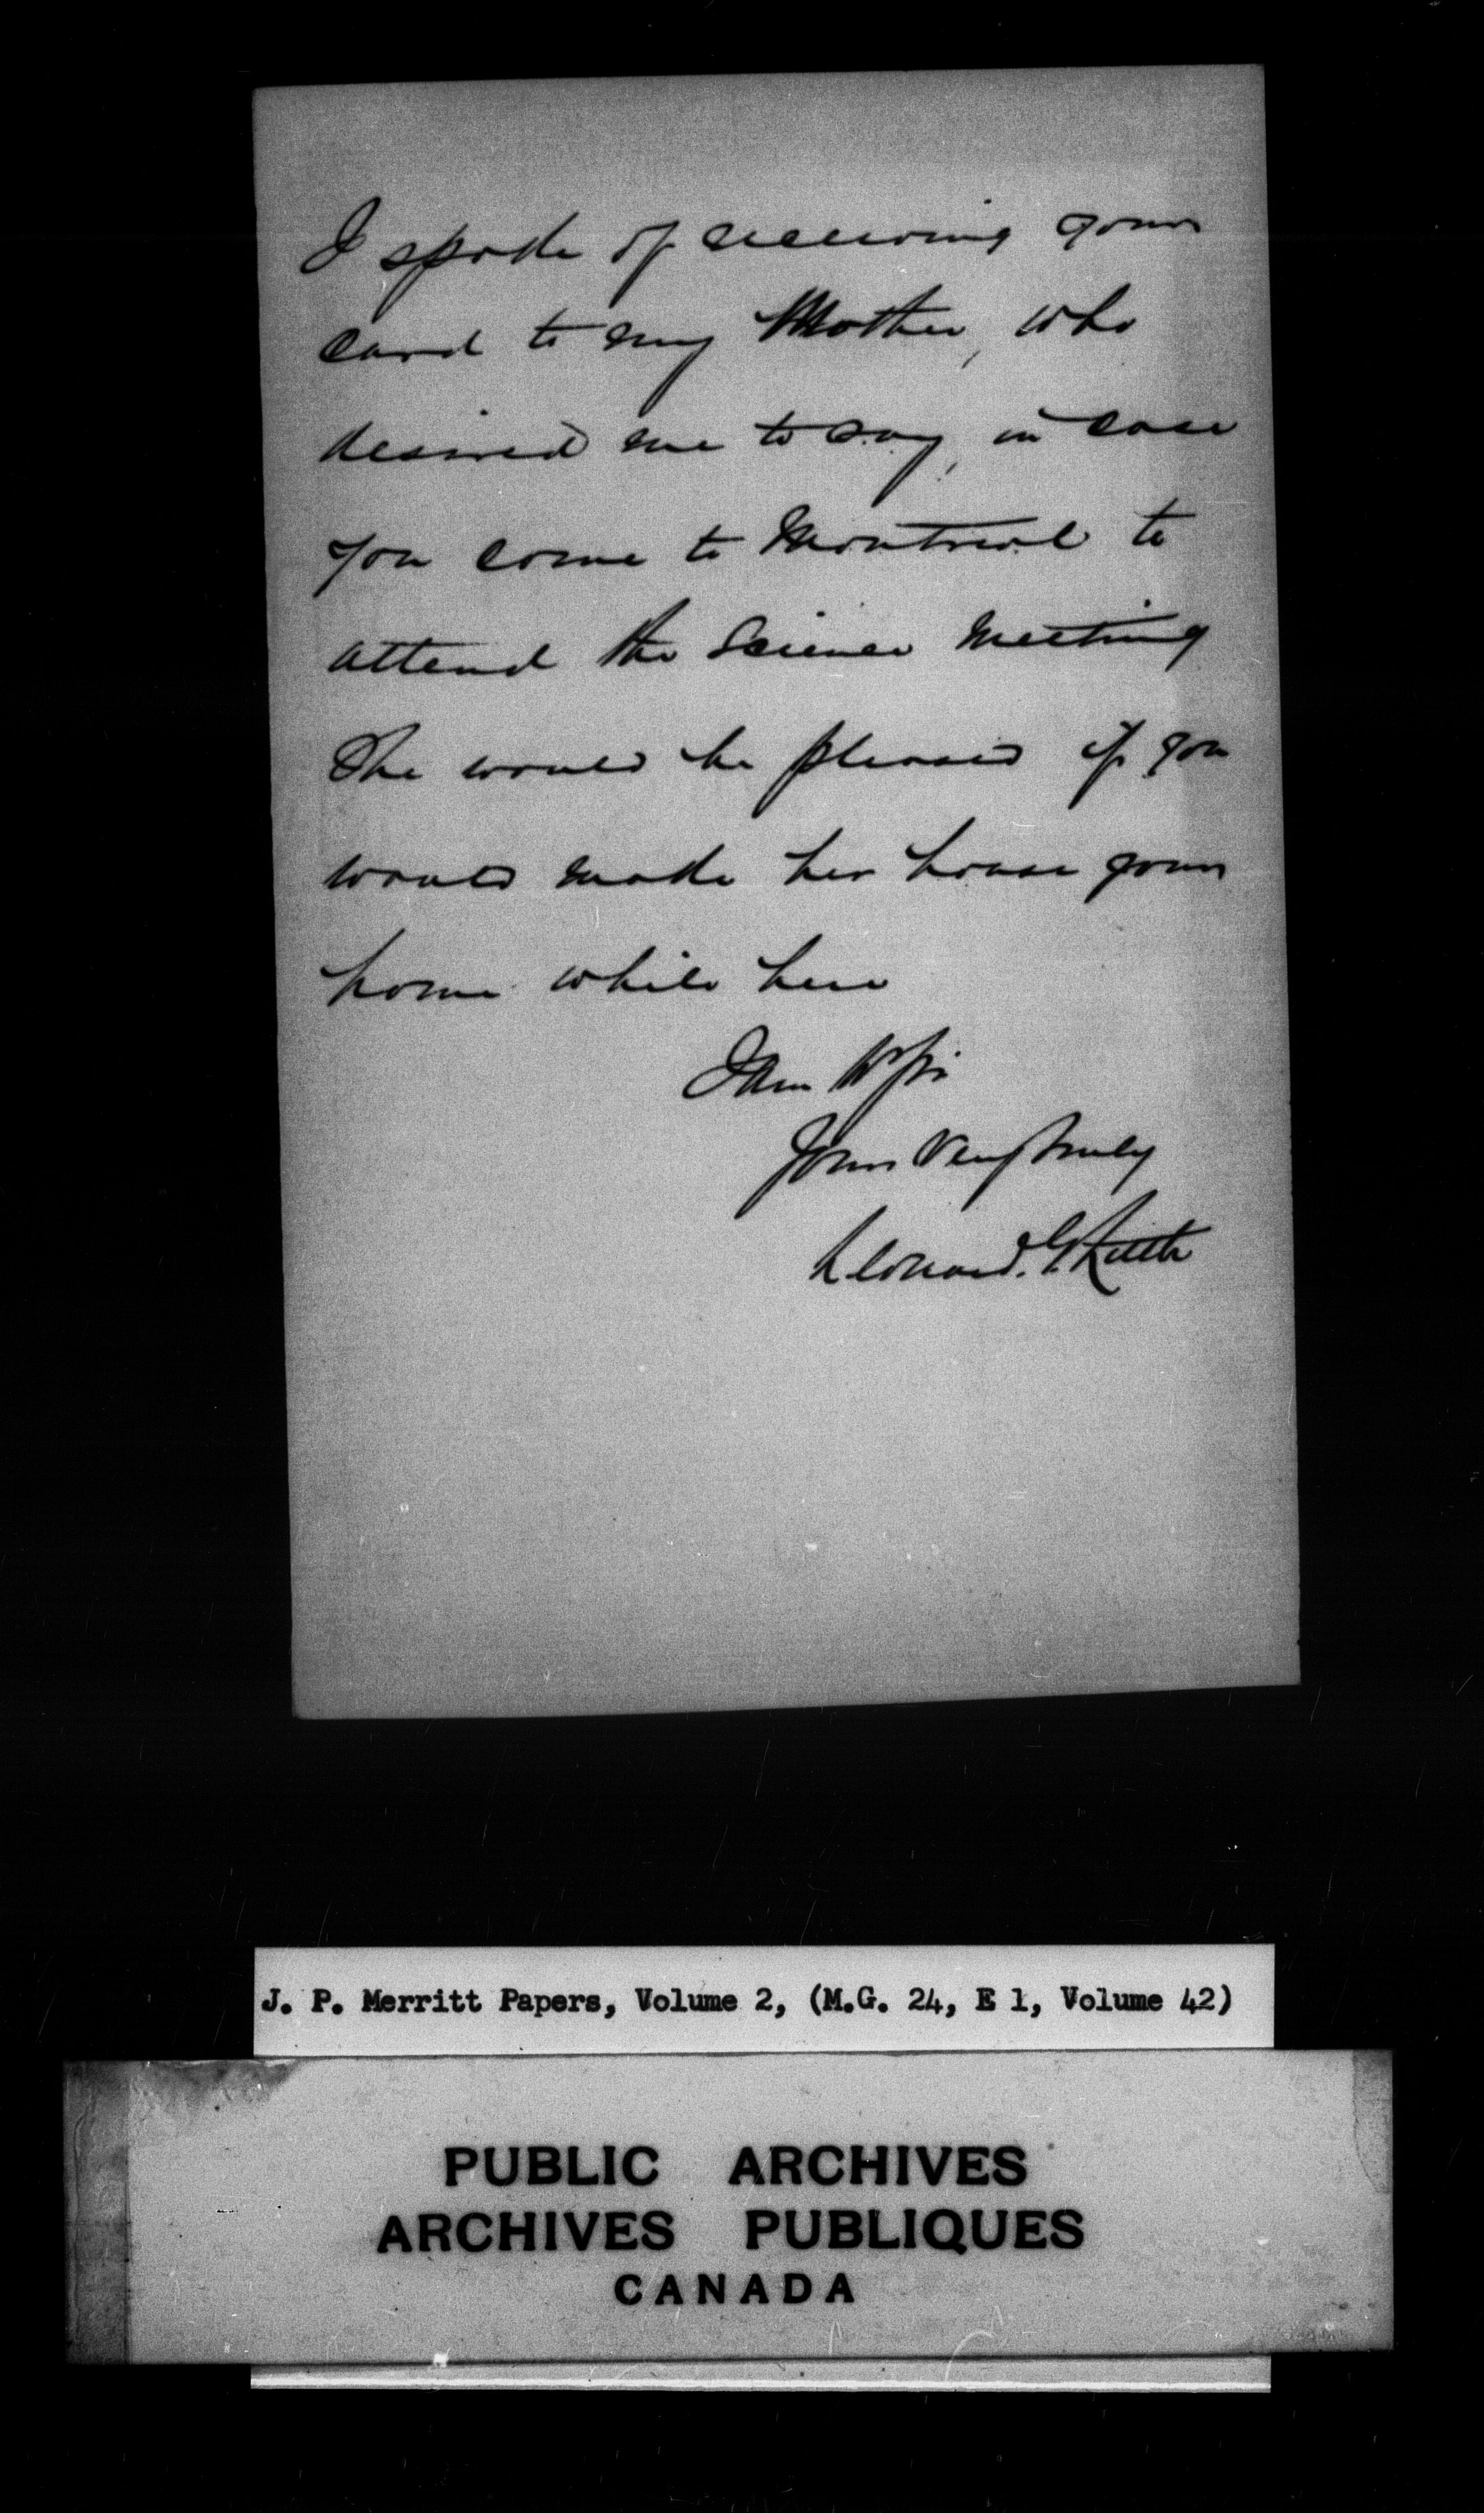 I spoke of receiving your
card to my Mother, who
desired me to say, in case
you come to Montreal to
attend the Science Meeting
She would be pleased if you
would make her house your
home while here
I Am
Yours Very truly
Leonard. G
J. P. Merritt Papers, Volume 2, (M.G. 24, E 1, Volume 42)
PUBLIC ARCHIVES
ARCHIVES PUBLIQUES
CANADA